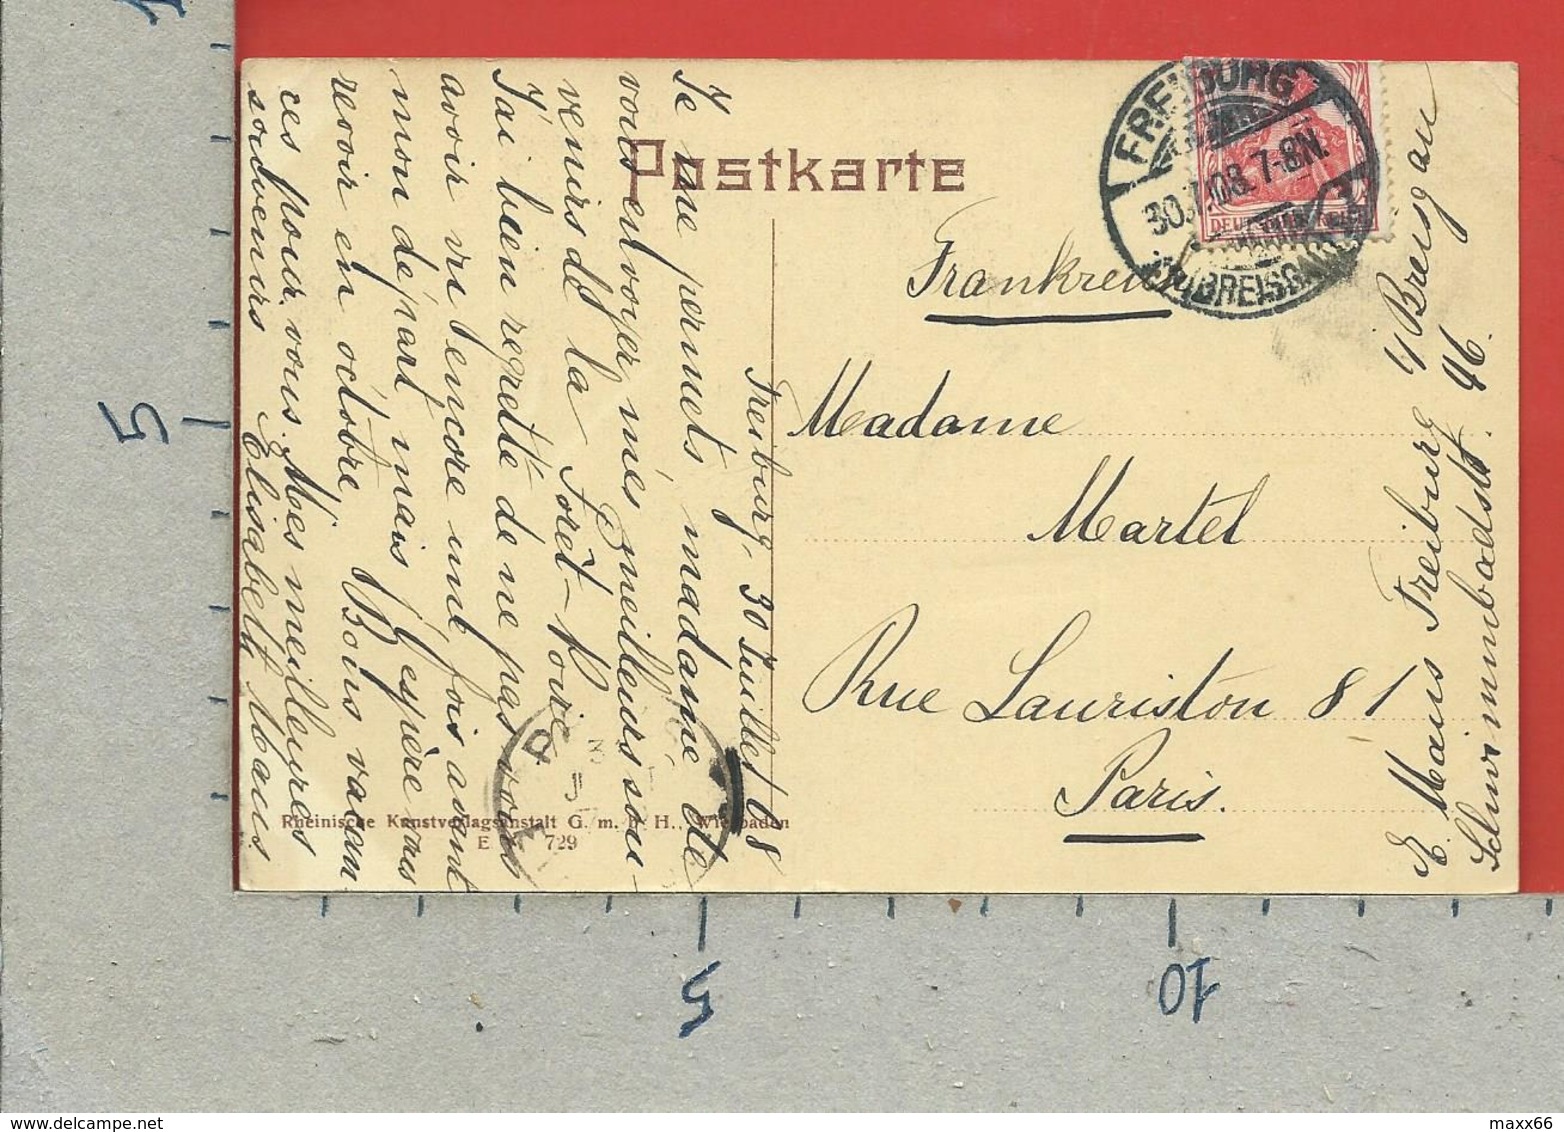 Postkarte
FREIBURG
30.7.08. 7-8N.
(BREISGAU)
Frankreich
Madame
Martel
Rue Lauriston 81
Paris.
E. Maus Freiburg i/Breisgau
Schwimmbadstr. 46.
Freiburg, 30 Juillet/08
Je me permets, madame de
vous envoyer mes meilleurs sou-
venirs de la Forêt-Noire
J'ai bien regretté de ne pas vous
avoir vu encore une fois avant
mon départ mais j'espère vous
revoir en octobre. Bons vacan-
ces pour vous. Mes meilleures
souvenirs Elisabeth Maus
Rheinische Kunstverlagsanstalt G. m. b. H., Wiesbaden
729
5
5
10
maxx66